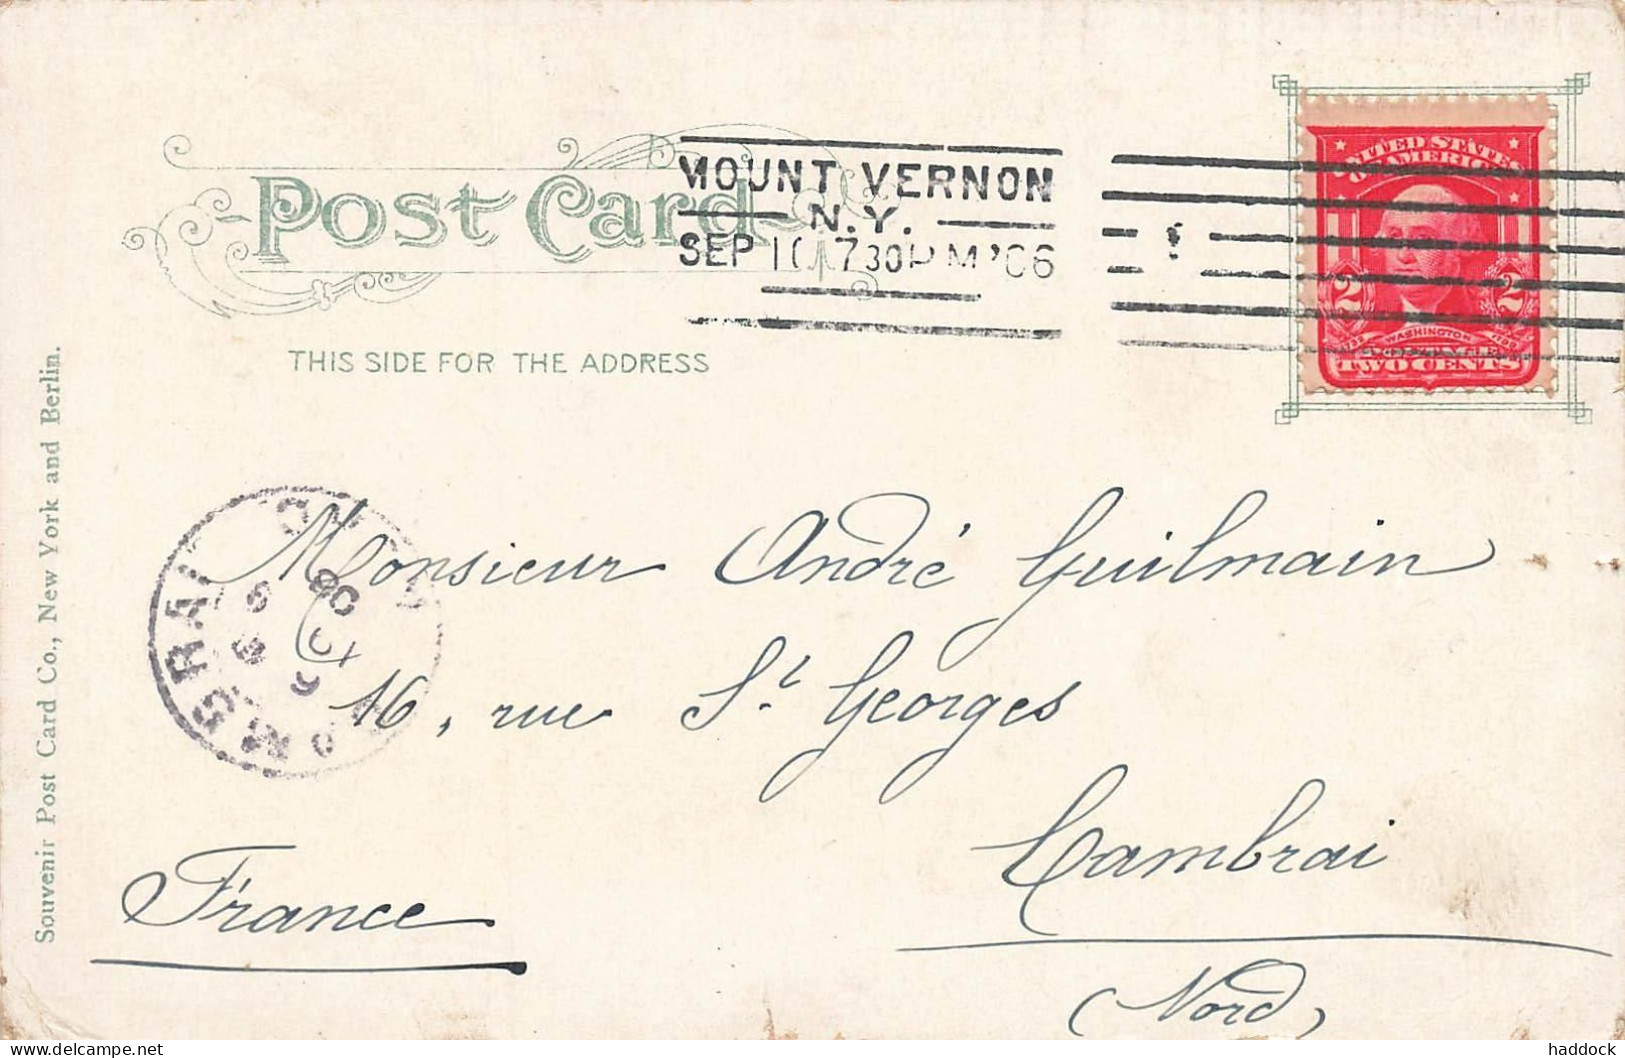 Post Card
MOUNT VERNON
N.Y.
SEP 10 730 P M '06
UNITED STATES
OF AMERICA
2 2
1732 WASHINGTON 1799
POSTAGE
TWO CENTS
THIS SIDE FOR THE ADDRESS
Souvenir Post Card Co., New York and Berlin.
CAMBRAI
NORD
Monsieur André Guilmain
16, rue St. Georges
Cambrai
(Nord)
France
delcampe.net
haddock